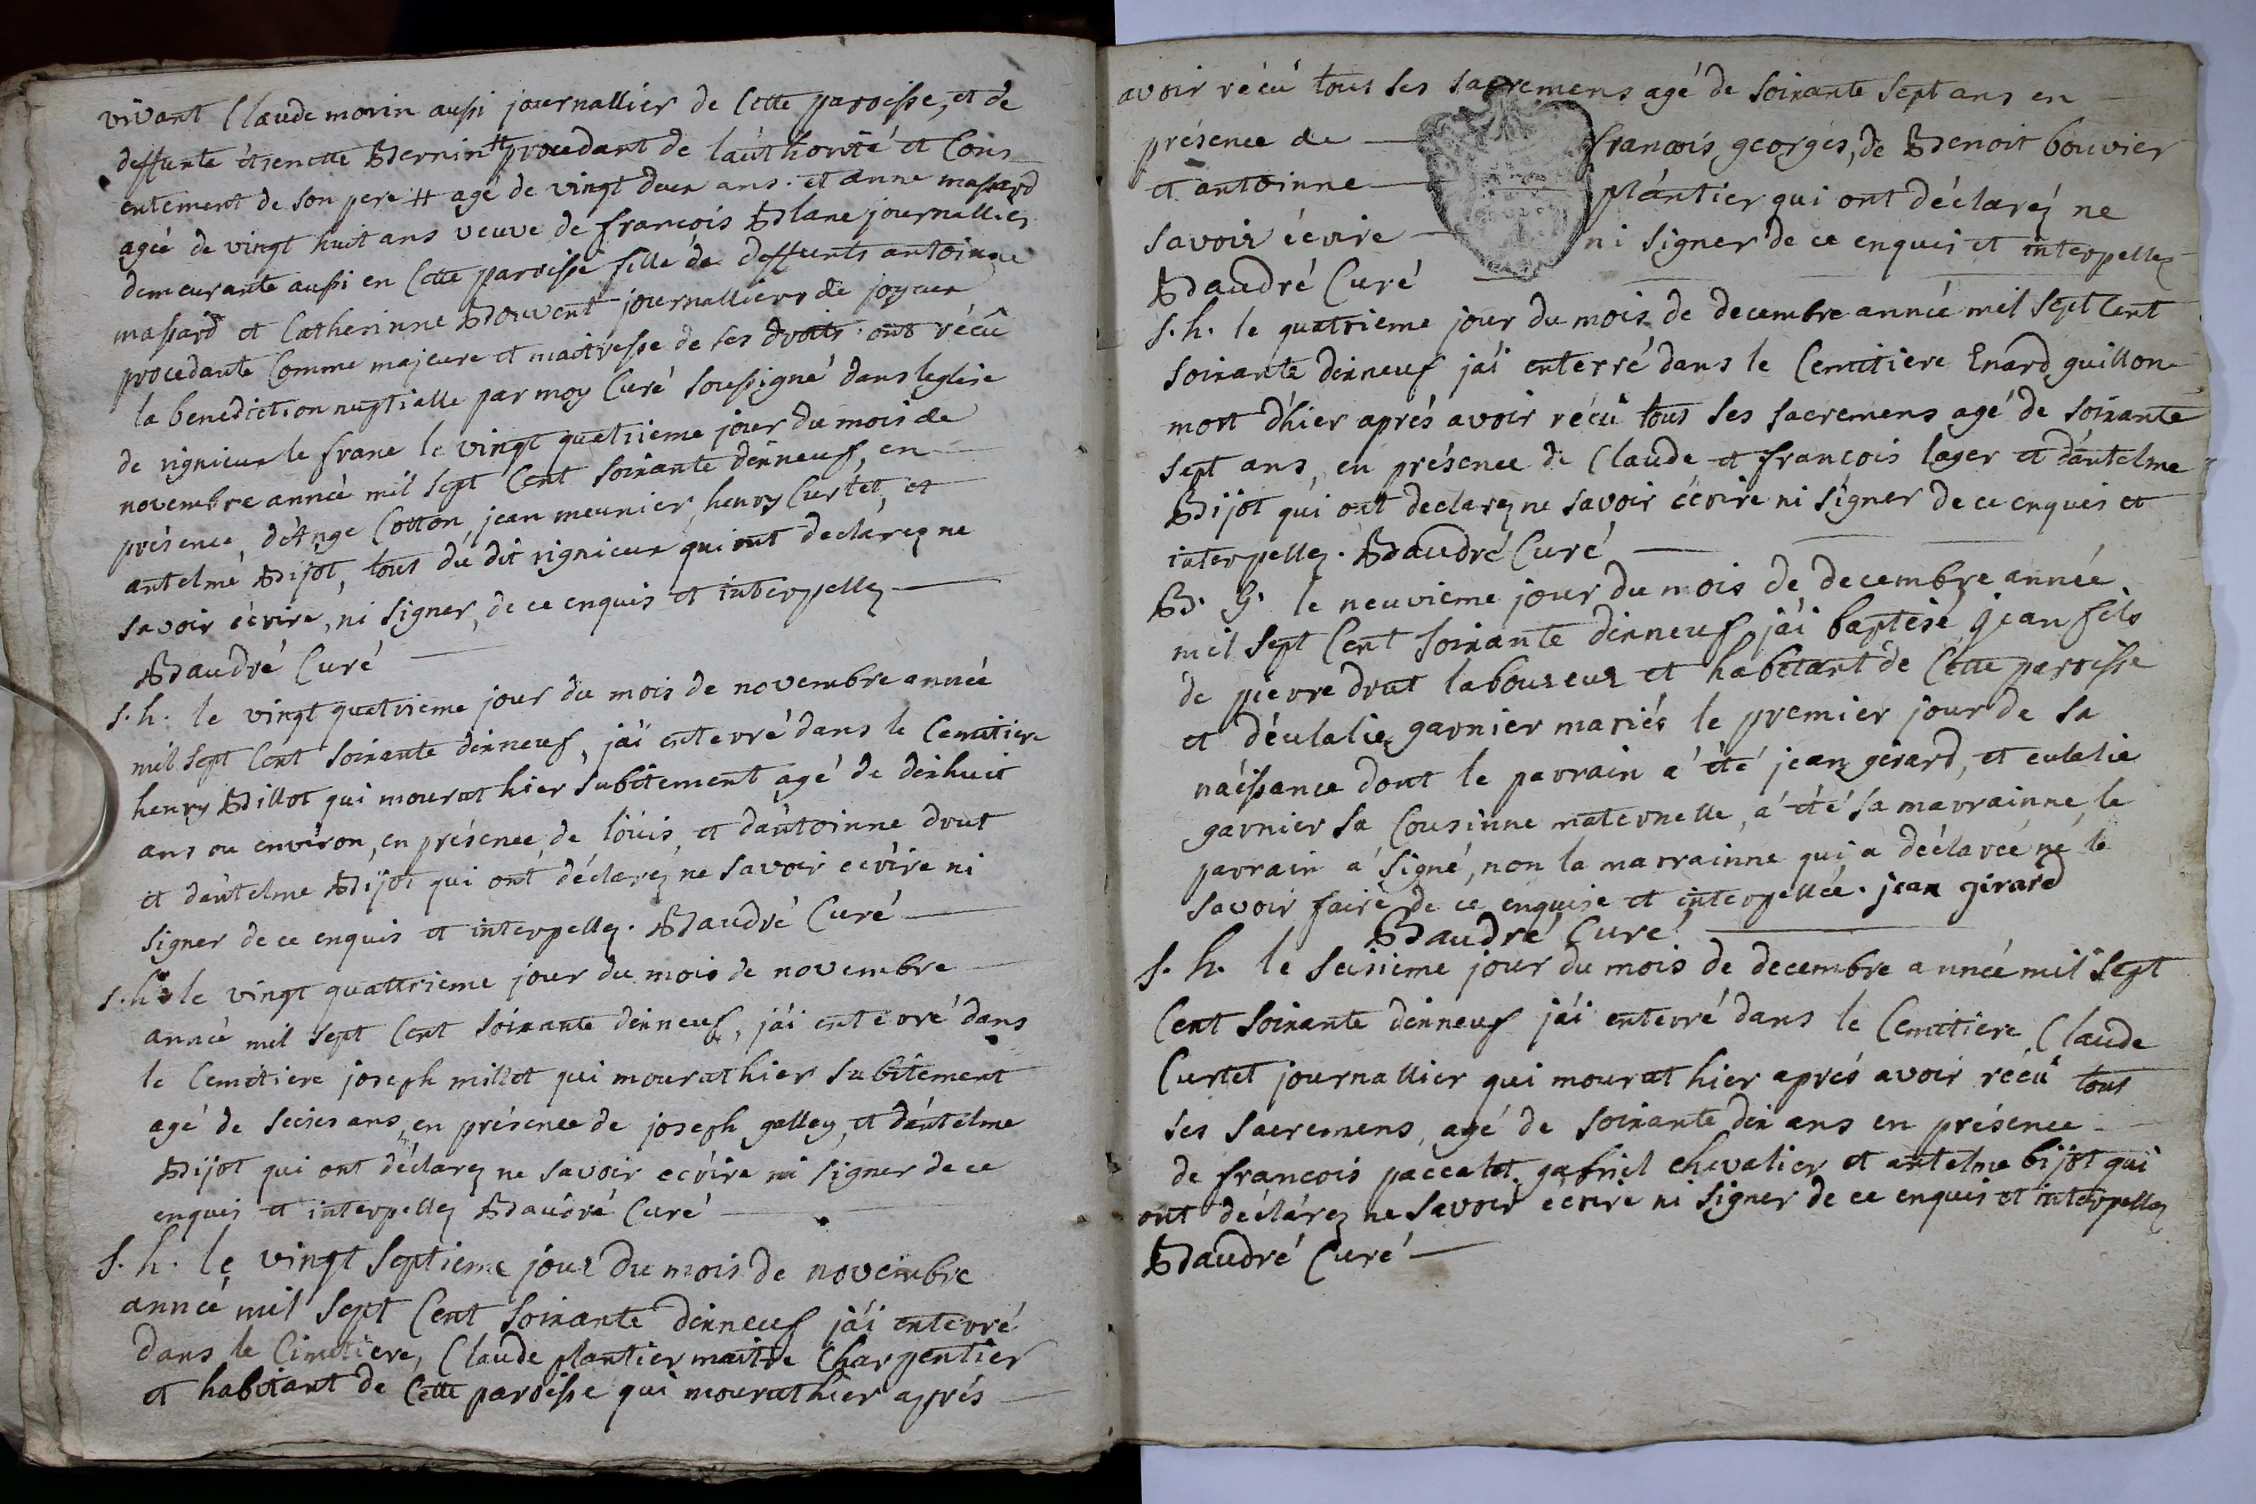 vivant Claude morin aussi journallier de Cette paroisse, et de
deffunte étienette Bernin # procedant de láuthorité et Cons
entement de son pere # agé de vingt deux ans. et anne massard
agée de vingt huit ans veuve de francois Blanc journallier
demeurante aussi en Cette paroisse fille de deffunts antoinne
massard et Catherinne Bouvent journalliers de joyeux
procedante Comme majeure et maitresse de ses droits. ont réçû
la benediction nuptialle par moy Curé soussigné dans leglise
de rignieux le franc le vingt quatrieme jour du mois de
novembre année mil sept Cent soixante dixneuf, en
présence, d'Ange Cotton, jean meunier, henry Curtet, et
antelme Bijot, tous du dit rignieux qui ont declarez ne
savoir écrire, ni signer, de ce enquis et interpellez
Baudré Curé
s. h. le vingt quatrieme jour du mois de novembre année
mil sept Cent soixante dixneuf, j'ai enterré dans le Cemitiere
henry Billot qui mourut hier subitement agé de dixhuit
ans ou environ, en présence de loüis, et d'antoinne drut
et d'antelme Bijot qui ont déclarez ne savoir ecrire ni
signer de ce enquis et interpellez. Baudré Curé
s. h. le vingt quattrieme jour du mois de novembre
année mil sept Cent soixante dixneuf, j'ai enterré dans
le Cemitiere joseph millet qui mourut hier subitement
agé de seizes ans, en présence de joseph galley, et d'antelme
Bijot qui ont déclarez ne savoir ecrire ni signer de ce
enquis et interpellez Baudré Curé
s. h. le vingt septieme jour du mois de novembre
année mil sept Cent soixante dixneuf j'ai enterré
dans le Cimitiere, Claude plantier maitre Charpentier
et habitant de Cette paroisse qui mourut hier aprés
avoir réçû tous ses sacremens agé de soixante sept ans en
présence de francois georges, de Benoit bouvier
et antoinne plantier qui ont déclarez ne
savoir écrire ni signer de ce enquis et interpellez
Baudré Curé
s. h. le quatrieme jour du mois de decembre année mil sept Cent
soixante dixneuf j'ai enterré dans le Cemitiere Enard guillon
mort d'hier aprés avoir réçû tous ses sacremens agé de soixante
sept ans, en présence de Claude et françois lager et d'antelme
Bijot qui ont declarez ne savoir écrire ni signer de ce enquis et
interpellez. Baudré Curé
B. G. le neuvieme jour du mois de decembre année
mil sept Cent soixante dixneuf j'ai baptisé jean fils
de pierre drut laboureur et habitant de Cette paroisse
et d'éulalie garnier mariés le premier jour de sa
náissance dont le parrain a été jean girard, et eulalie
garnier sa Cousinne maternelle, a été sa marrainne, le
parrain a signé, non la marrainne qui a déclarée ne le
savoir faire de ce enquise et interpellée. jean girard
Baudré Curé
s. h. le seisieme jour du mois de decembre année mil sept
Cent soixante dixneuf j'ai enterré dans le Cemitiere Claude
Curtet journallier qui mourut hier aprés avoir réçû tous
ses sacremens, agé de soixante dix ans en présence
de francois paccalet, gabriel chevalier et antelme bijot qui
ont déclárez ne savoir écrire ni signer de ce enquis et interpellez
Baudré Curé